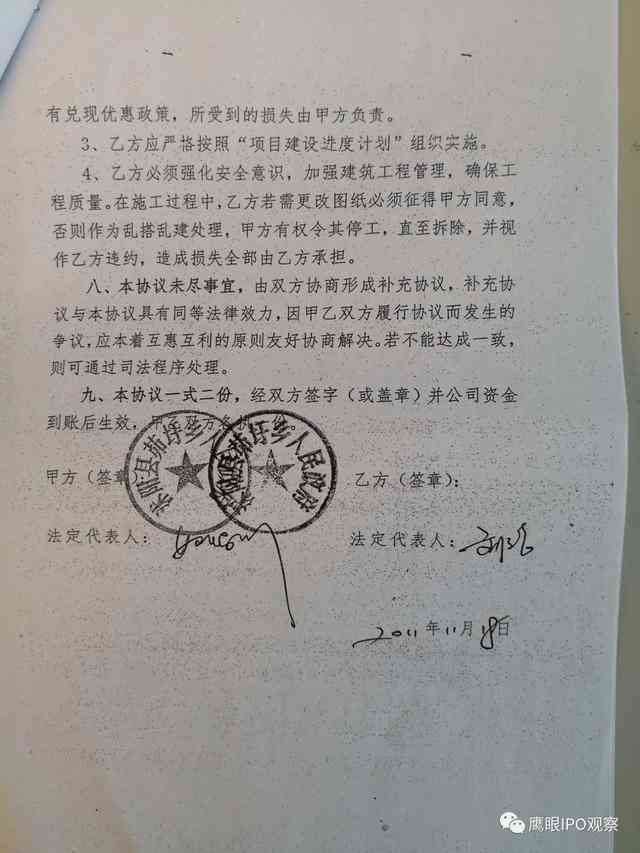 有兑现优惠政策，所受到的损失由甲方负责。
3、乙方应严格按照“项目建设进度计划”组织实施。
4、乙方必须强化安全意识，加强建筑工程管理，确保工
程质量。在施工过程中，乙方若需更改图纸必须征得甲方同意，
否则作为乱搭乱建处理，甲方有权令其停工，直至拆除，并视
作乙方违约，造成损失全部由乙方承担。
八、本协议未尽事宜，由双方协商形成补充协议，补充协
议与本协议具有同等法律效力，因甲乙双方履行协议而发生的
争议，应本着互惠互利的原则友好协商解决。若不能达成一致，
则可通过司法程序处理。
九、本协议一式二份，经双方签字（或盖章）并公司资金
到账后生效，甲乙双方各执一份。
甲方（签章 乙方（签章）：
乡人民政府
法定代表人： 法定代表人：
2011年11月18日
鹰眼IPO观察